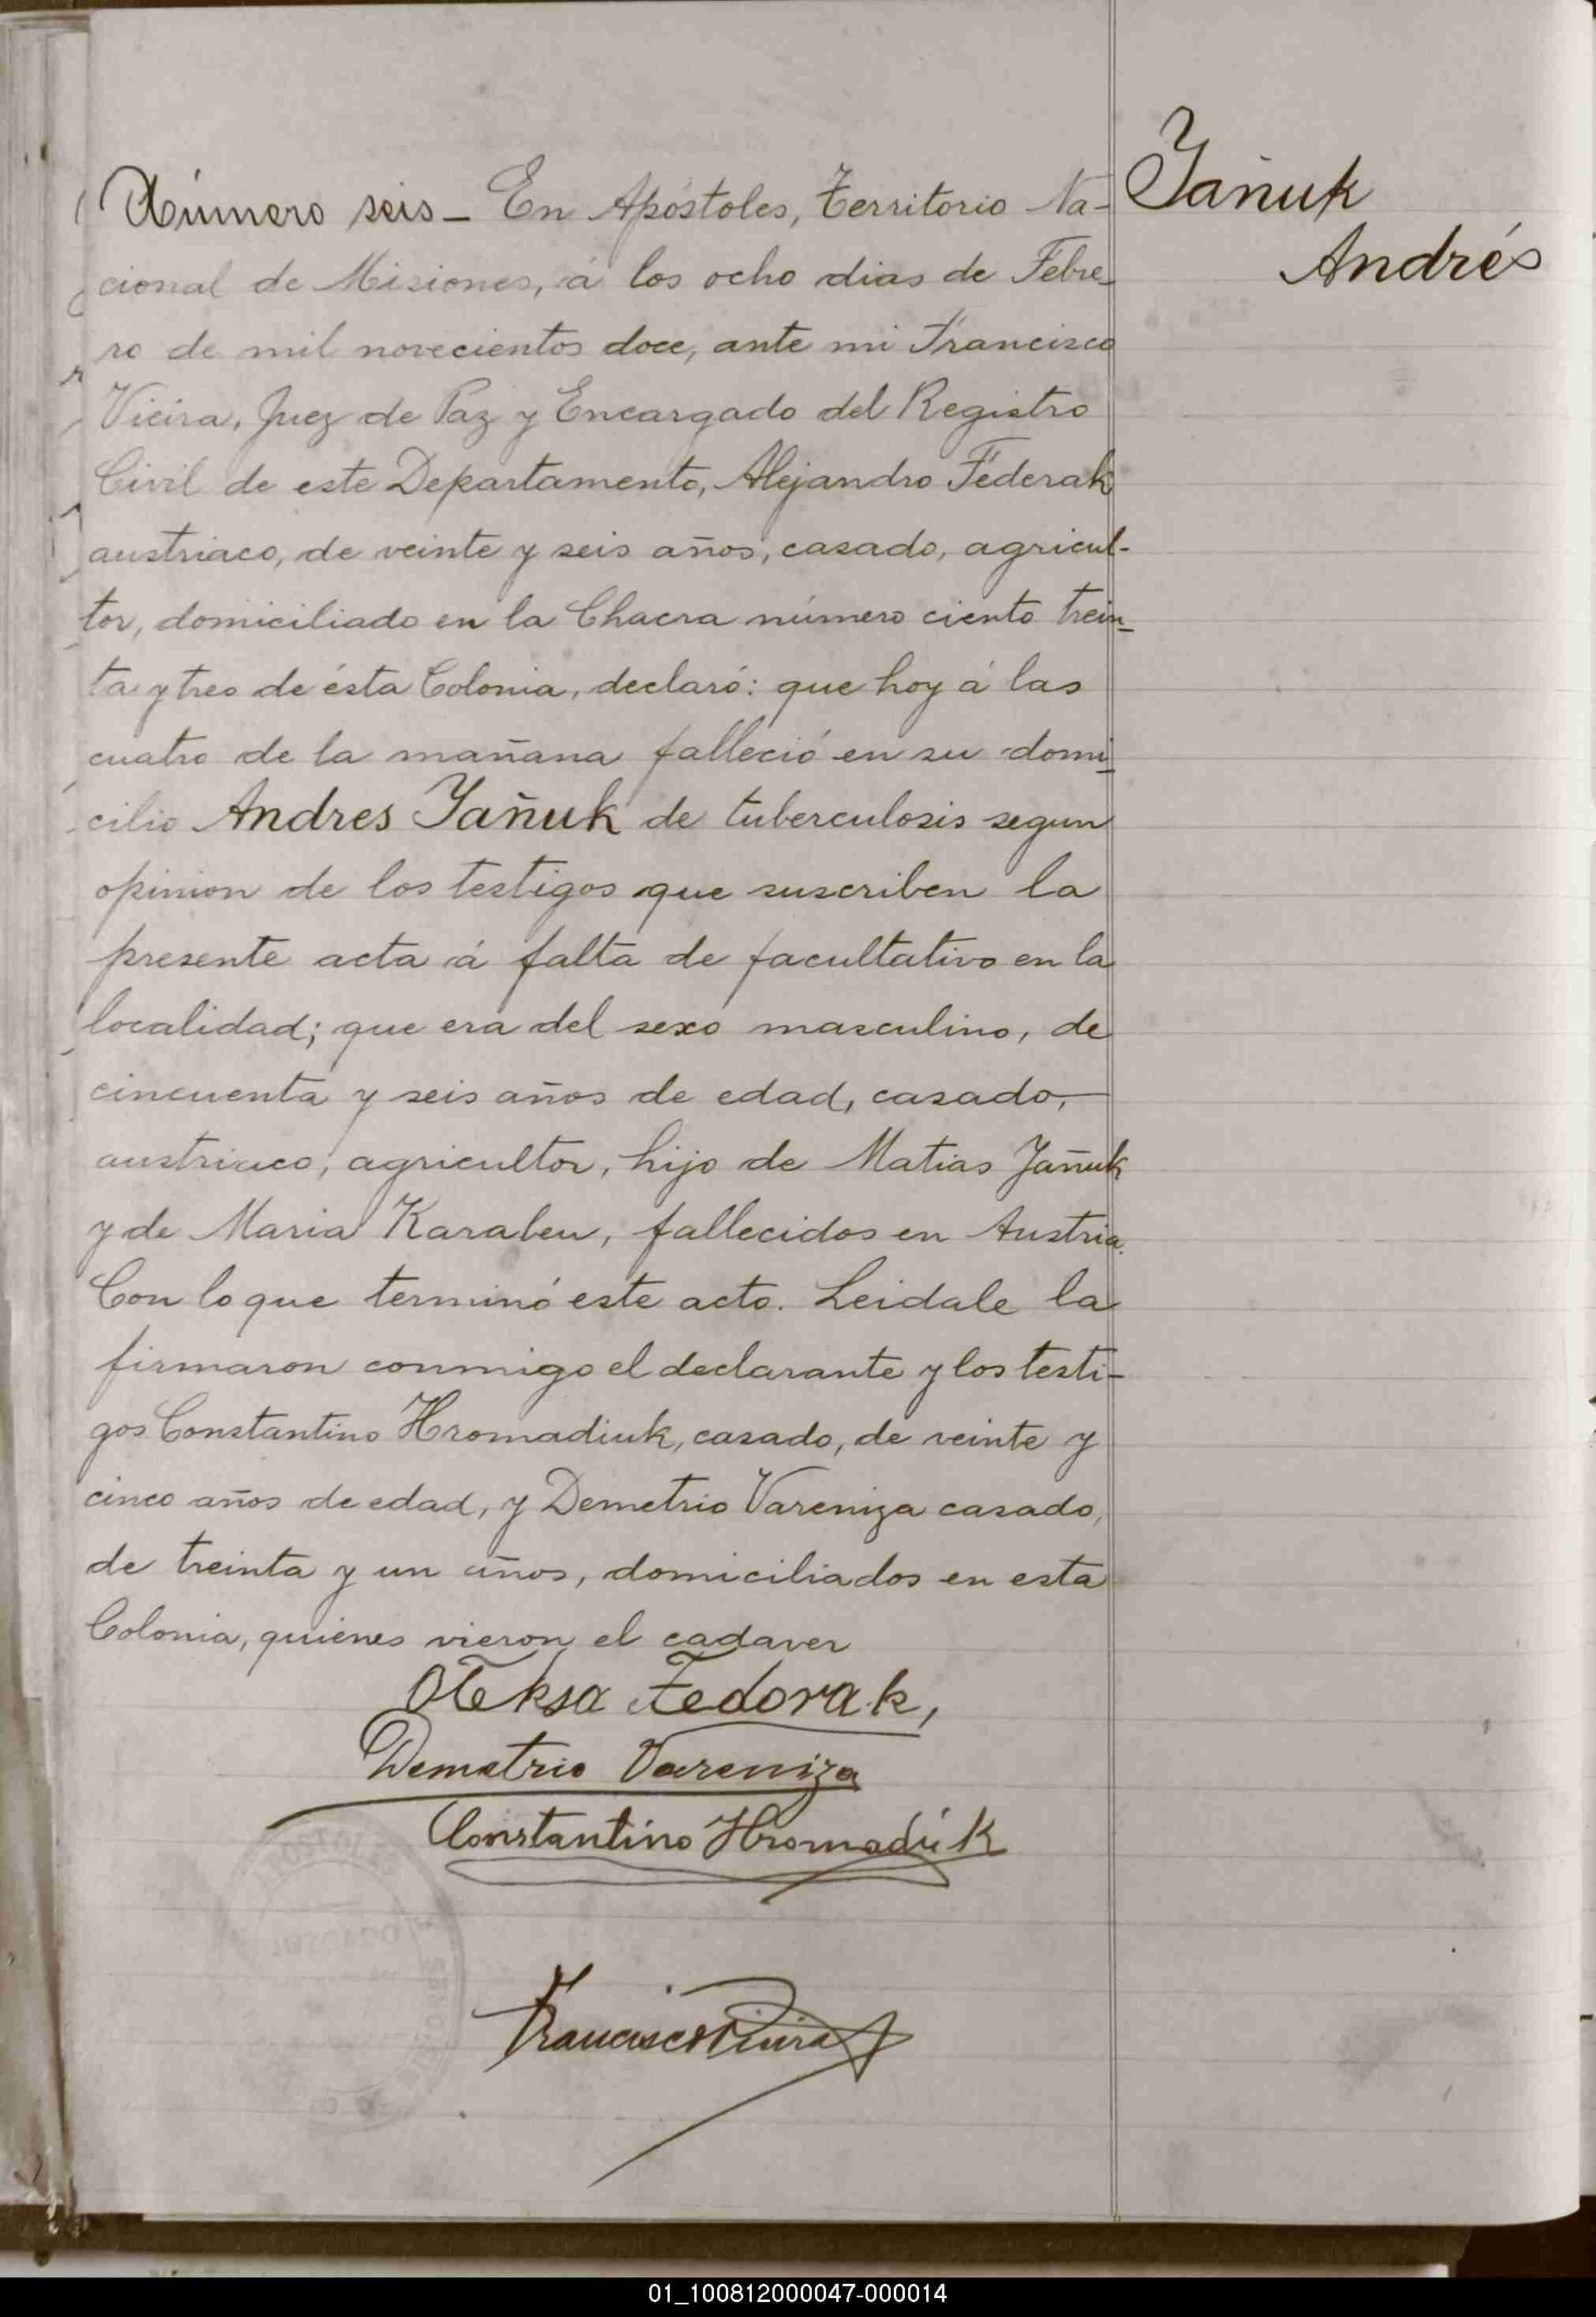 Número seis_ En Apóstoles, Territorio Na-
cional de Misiones, á los ocho dias de Febre_
ro de mil novecientos doce, ante mi Francisco
Vieira, Juez de Paz y Encargado del Registro
Civil de este Departamento, Alejandro Federak
austriaco, de veinte y seis años, casado, agricul-
tor, domiciliado en la Chacra número ciento trein_
ta y tres de ésta Colonia, declaró: que hoy á las
cuatro de la mañana falleció en su domi_
cilio Andres Yañuk de tuberculosis segun
opinion de los testigos que suscriben la
presente acta á falta de facultativo en la
localidad; que era del sexo masculino, de
cincuenta y seis años de edad, casado,—
austriaco, agricultor, hijo de Matias Yañuk
y de Maria Karaben, fallecidos en Austria.
Con lo que terminó este acto. Leidale la
firmaron conmigo el declarante y los testi-
gos Constantino Hromadiuk, casado, de veinte y
cinco años de edad, y Demetrio Vareniza casado,
de treinta y un años, domiciliados en esta
Colonia, quienes vieron el cadaver
Oleksa Fedorak,
Demetrio Vareniza
Constantino Hromadiuk
Francisco Vieira
Yañuk
Andrés
01_100812000047-000014